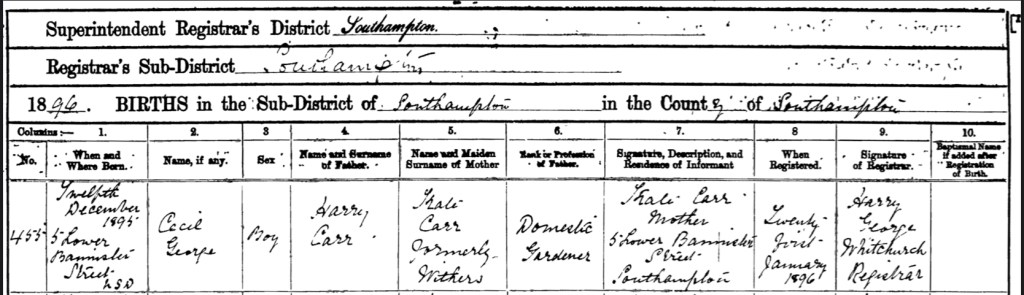 Superintendent Registrar's District Southampton.
Registrar's Sub-District Southampton
1896. BIRTHS in the Sub-District of Southampton in the County of Southampton
Columns:— 1. 2. 3 4. 5. 6. 7. 8 9. 10.
No. When and Where Born. Name, if any. Sex Name and Surname of Father. Name and Maiden Surname of Mother Rank or Profession of Father. Signature, Description, and Residence of Informant When Registered. Signature of Registrar. Baptismal Name if added after Registration of Birth.
455
Twelfth
December
1895
5 Lower
Bannister
Street
U.S.D
Cecil
George
Boy
Harry
Carr
Kate
Carr
formerly
Withers
Domestic
Gardener
Kate Carr
Mother
5 Lower Bannister
Street
Southampton
Twenty
first
January
1896
Harry
George
Whitchurch
Registrar